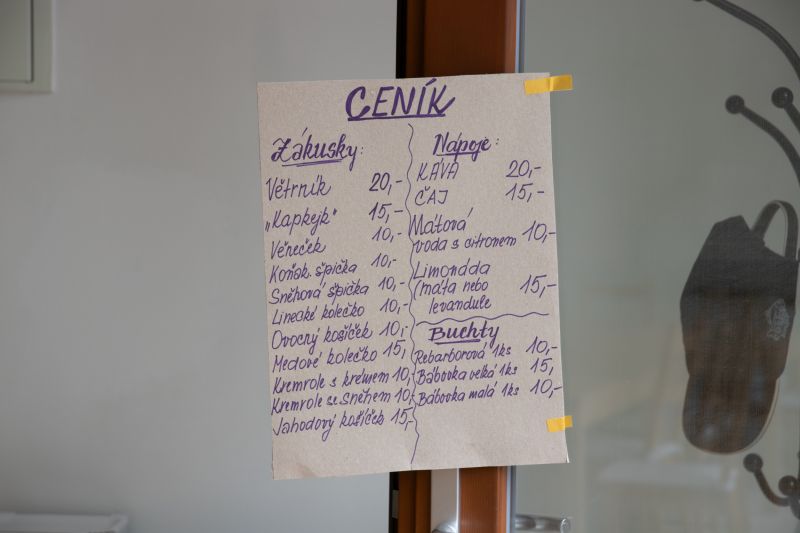 CENÍK
Zákusky:
Větrník 20,-
„Kapkejk" 15,-
Věneček 10,-
Koňak. špička 10,-
Sněhová špička 10,-
Linecké kolečko 10,-
Ovocný košíček 10,-
Medové kolečko 15,-
Kremrole s krémem 10,-
Kremrole se sněhem 10,-
Jahodový košíček 15,-
Nápoje:
KÁVA 20,-
ČAJ 15,-
Mátová
voda s citronem 10,-
Limonáda
(máta nebo 15,-
levandule
Buchty
Rebarborová 1ks 10,-
Bábovka velká 1ks 15,
Bábovka malá 1ks 10,-